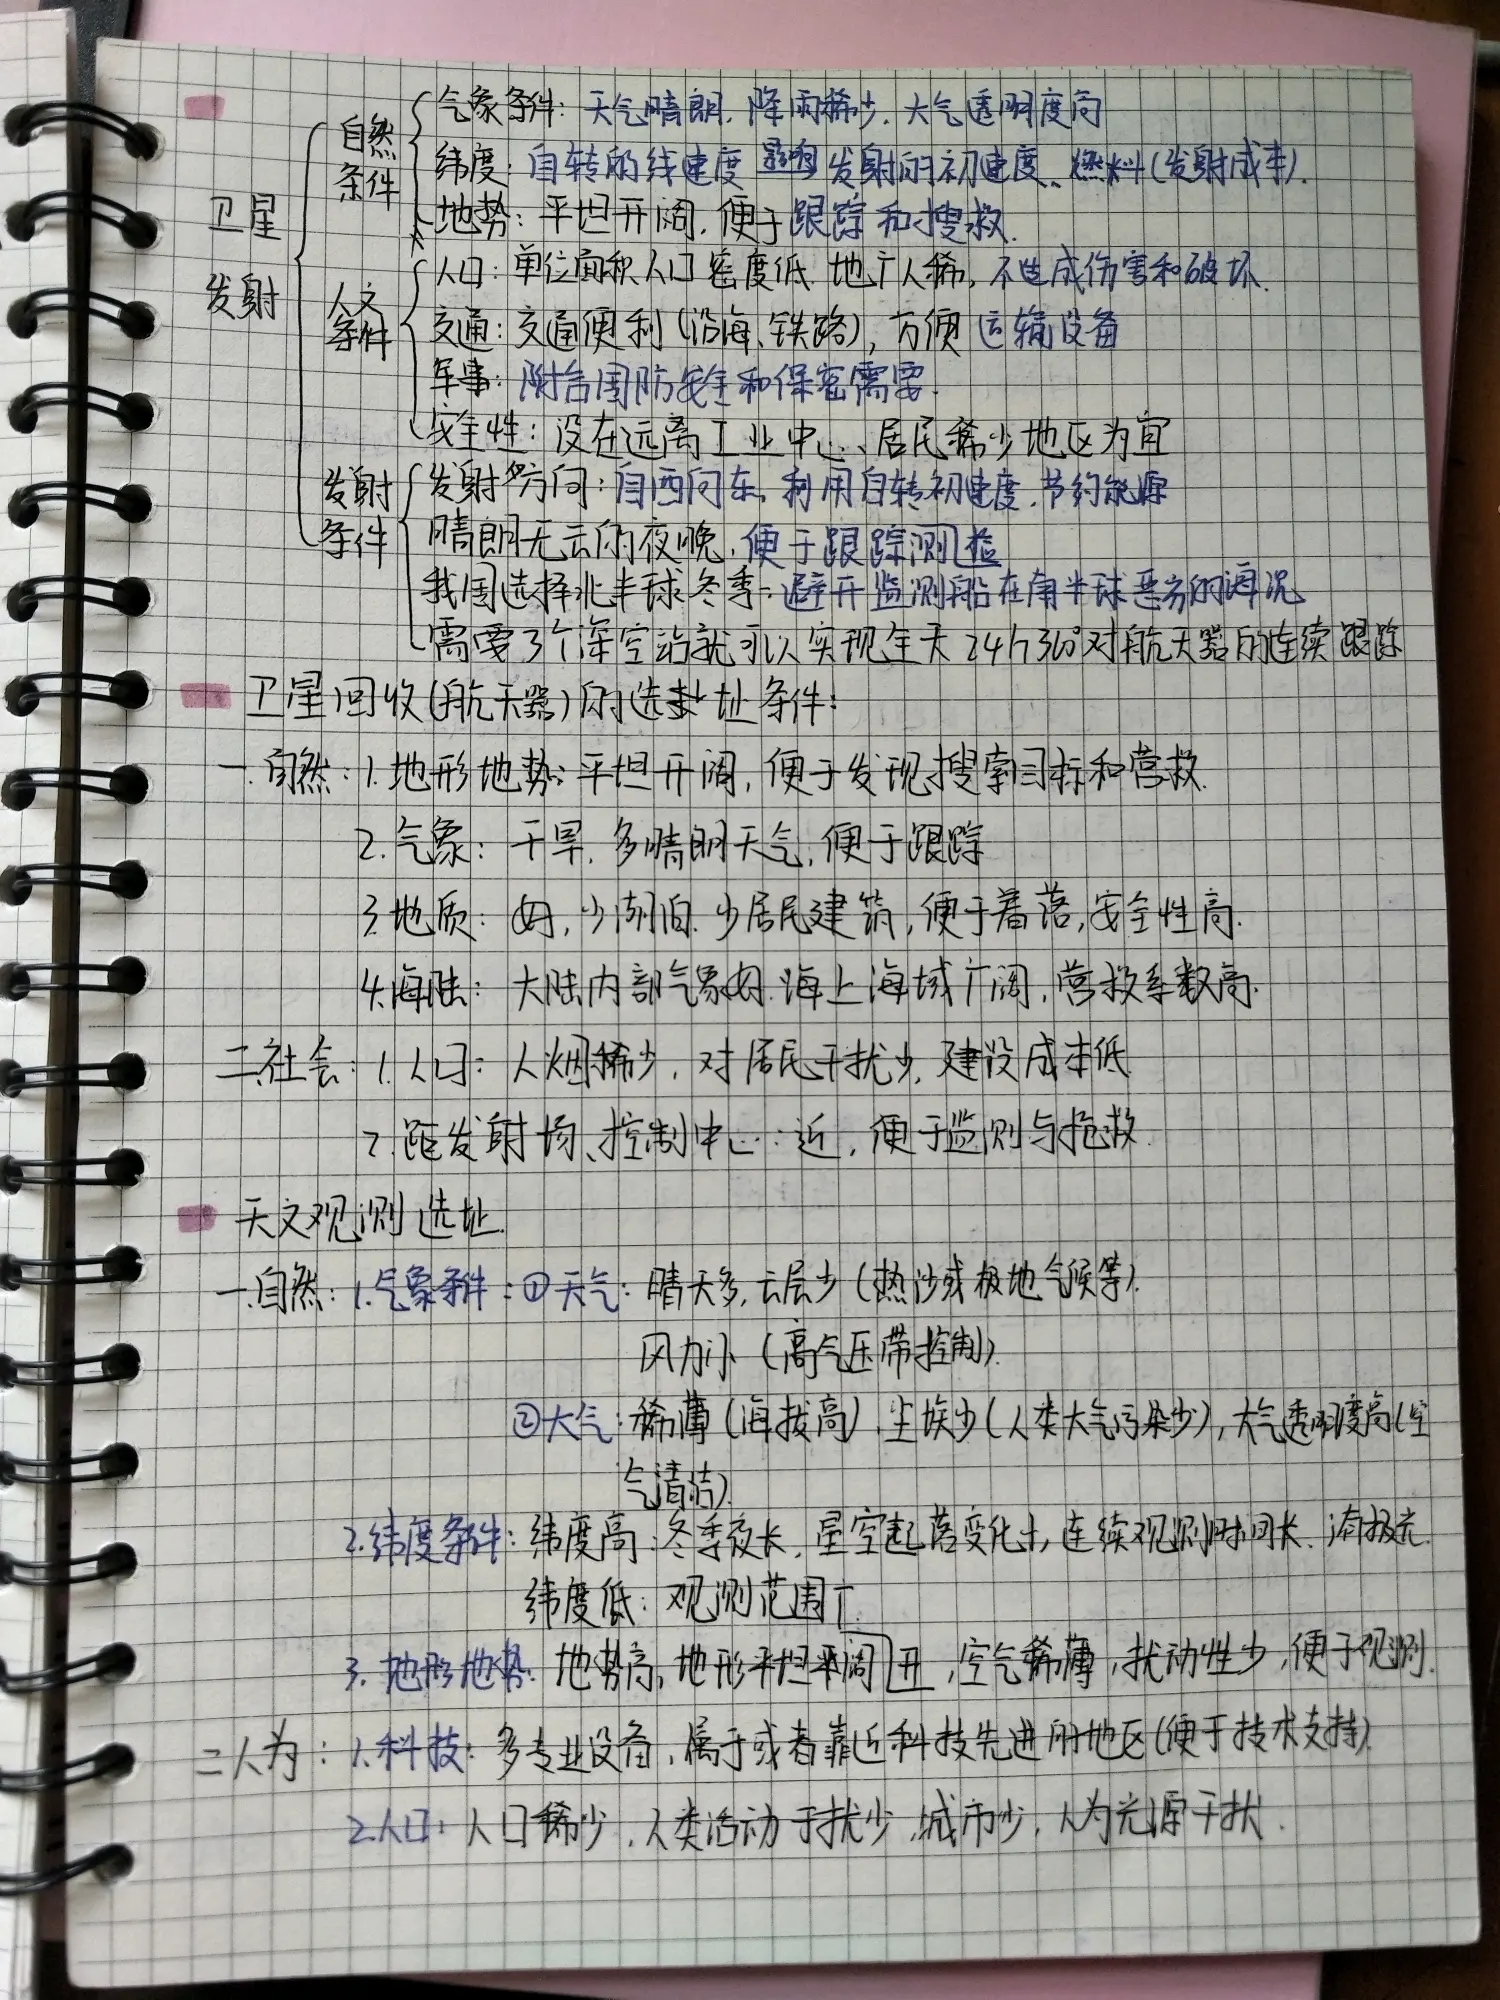 气象条件：天气晴朗，降雨稀少，大气透明度高
自然条件
纬度：自转的线速度影响发射的初速度、燃料（发射成本）.
地势：平坦开阔，便于跟踪和搜救.
卫星发射
人口：单位面积人口密度低，地广人稀，不造成伤害和破坏.
人文条件
交通：交通便利（沿海、铁路），方便运输设备
军事：附合国防安全和保密需要.
安全性：设在远离工业中心、居民稀少地区为宜
发射条件
发射方向：自西向东，利用自转初速度，节约能源
晴朗无云的夜晚，便于跟踪测控
我国选择北半球冬季：避开监测船在南半球恶劣的海况
需要3个深空站就可以实现全天24h360°对航天器的连续跟踪
卫星回收（航天器）的选址条件：
一.自然：1.地形地势：平坦开阔，便于发现搜索目标和营救.
2.气象：干旱，多晴朗天气，便于跟踪
3.地质：好，少湖泊，少居民建筑，便于着落，安全性高.
4.海陆：大陆内部气象好，海上海域广阔，营救系数高.
二.社会：1.人口：人烟稀少，对居民干扰少，建设成本低
2.距发射场、控制中心：近，便于监测与抢救.
天文观测选址.
一.自然：1.气象条件：①天气：晴天多，云层少（热沙或极地气候等）.
风力小（高气压带控制）.
②大气：稀薄（海拔高），尘埃少（人类大气污染少），大气透明度高（空
气清洁）.
2.纬度条件：纬度高：冬季夜长，星空起落变化小，连续观测时间长，有极光.
纬度低：观测范围广.
3.地形地势：地势高，地形平坦开阔，空气稀薄，扰动性少，便于观测.
二人为：1.科技：多专业设备，属于或者靠近科技先进的地区（便于技术支持）.
2.人口：人口稀少，人类活动干扰少，城市少，人为光源干扰.